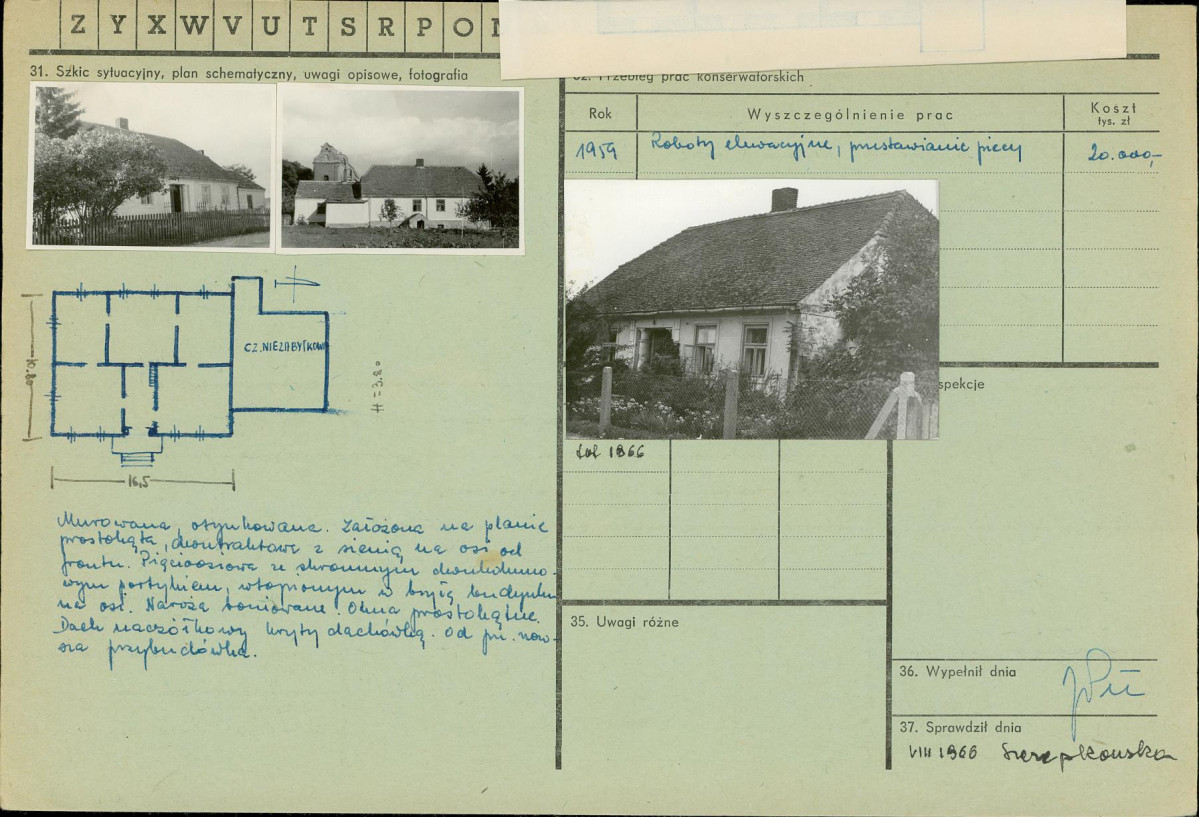 Z Y X W V U T S R P O N
31. Szkic sytuacyjny, plan schematyczny, uwagi opisowe, fotografia
32. Przebieg prac konserwatorskich
Rok
Wyszczególnienie prac
Koszt
tys. zł
1959
Roboty elewacyjne, przestawianie piecy
20.000,-
CZ. NIEZABYTKOWA
10.80
H = 3.80
16,5
Murowana, otynkowana. Założona na planie
prostokąta, dwutraktowa z sienią na osi od
frontu. Pięcioosiowa ze skromnym dwukolumno-
wym portykiem, wtopionym w bryłę budynku
na osi. Naroża boniowane. Okna prostokątne.
Dach naczółkowy kryty dachówką. Od pn. now-
sza przybudówka.
spekcje
1966
35. Uwagi różne
36. Wypełnił dnia
37. Sprawdził dnia
VIII 1966